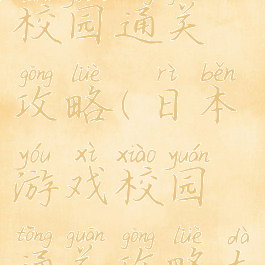 校园通关
gōng lüè rì běn
攻略(日本
yóu xì xiào yuán
游戏校园
tōng guān gōng lüè dà